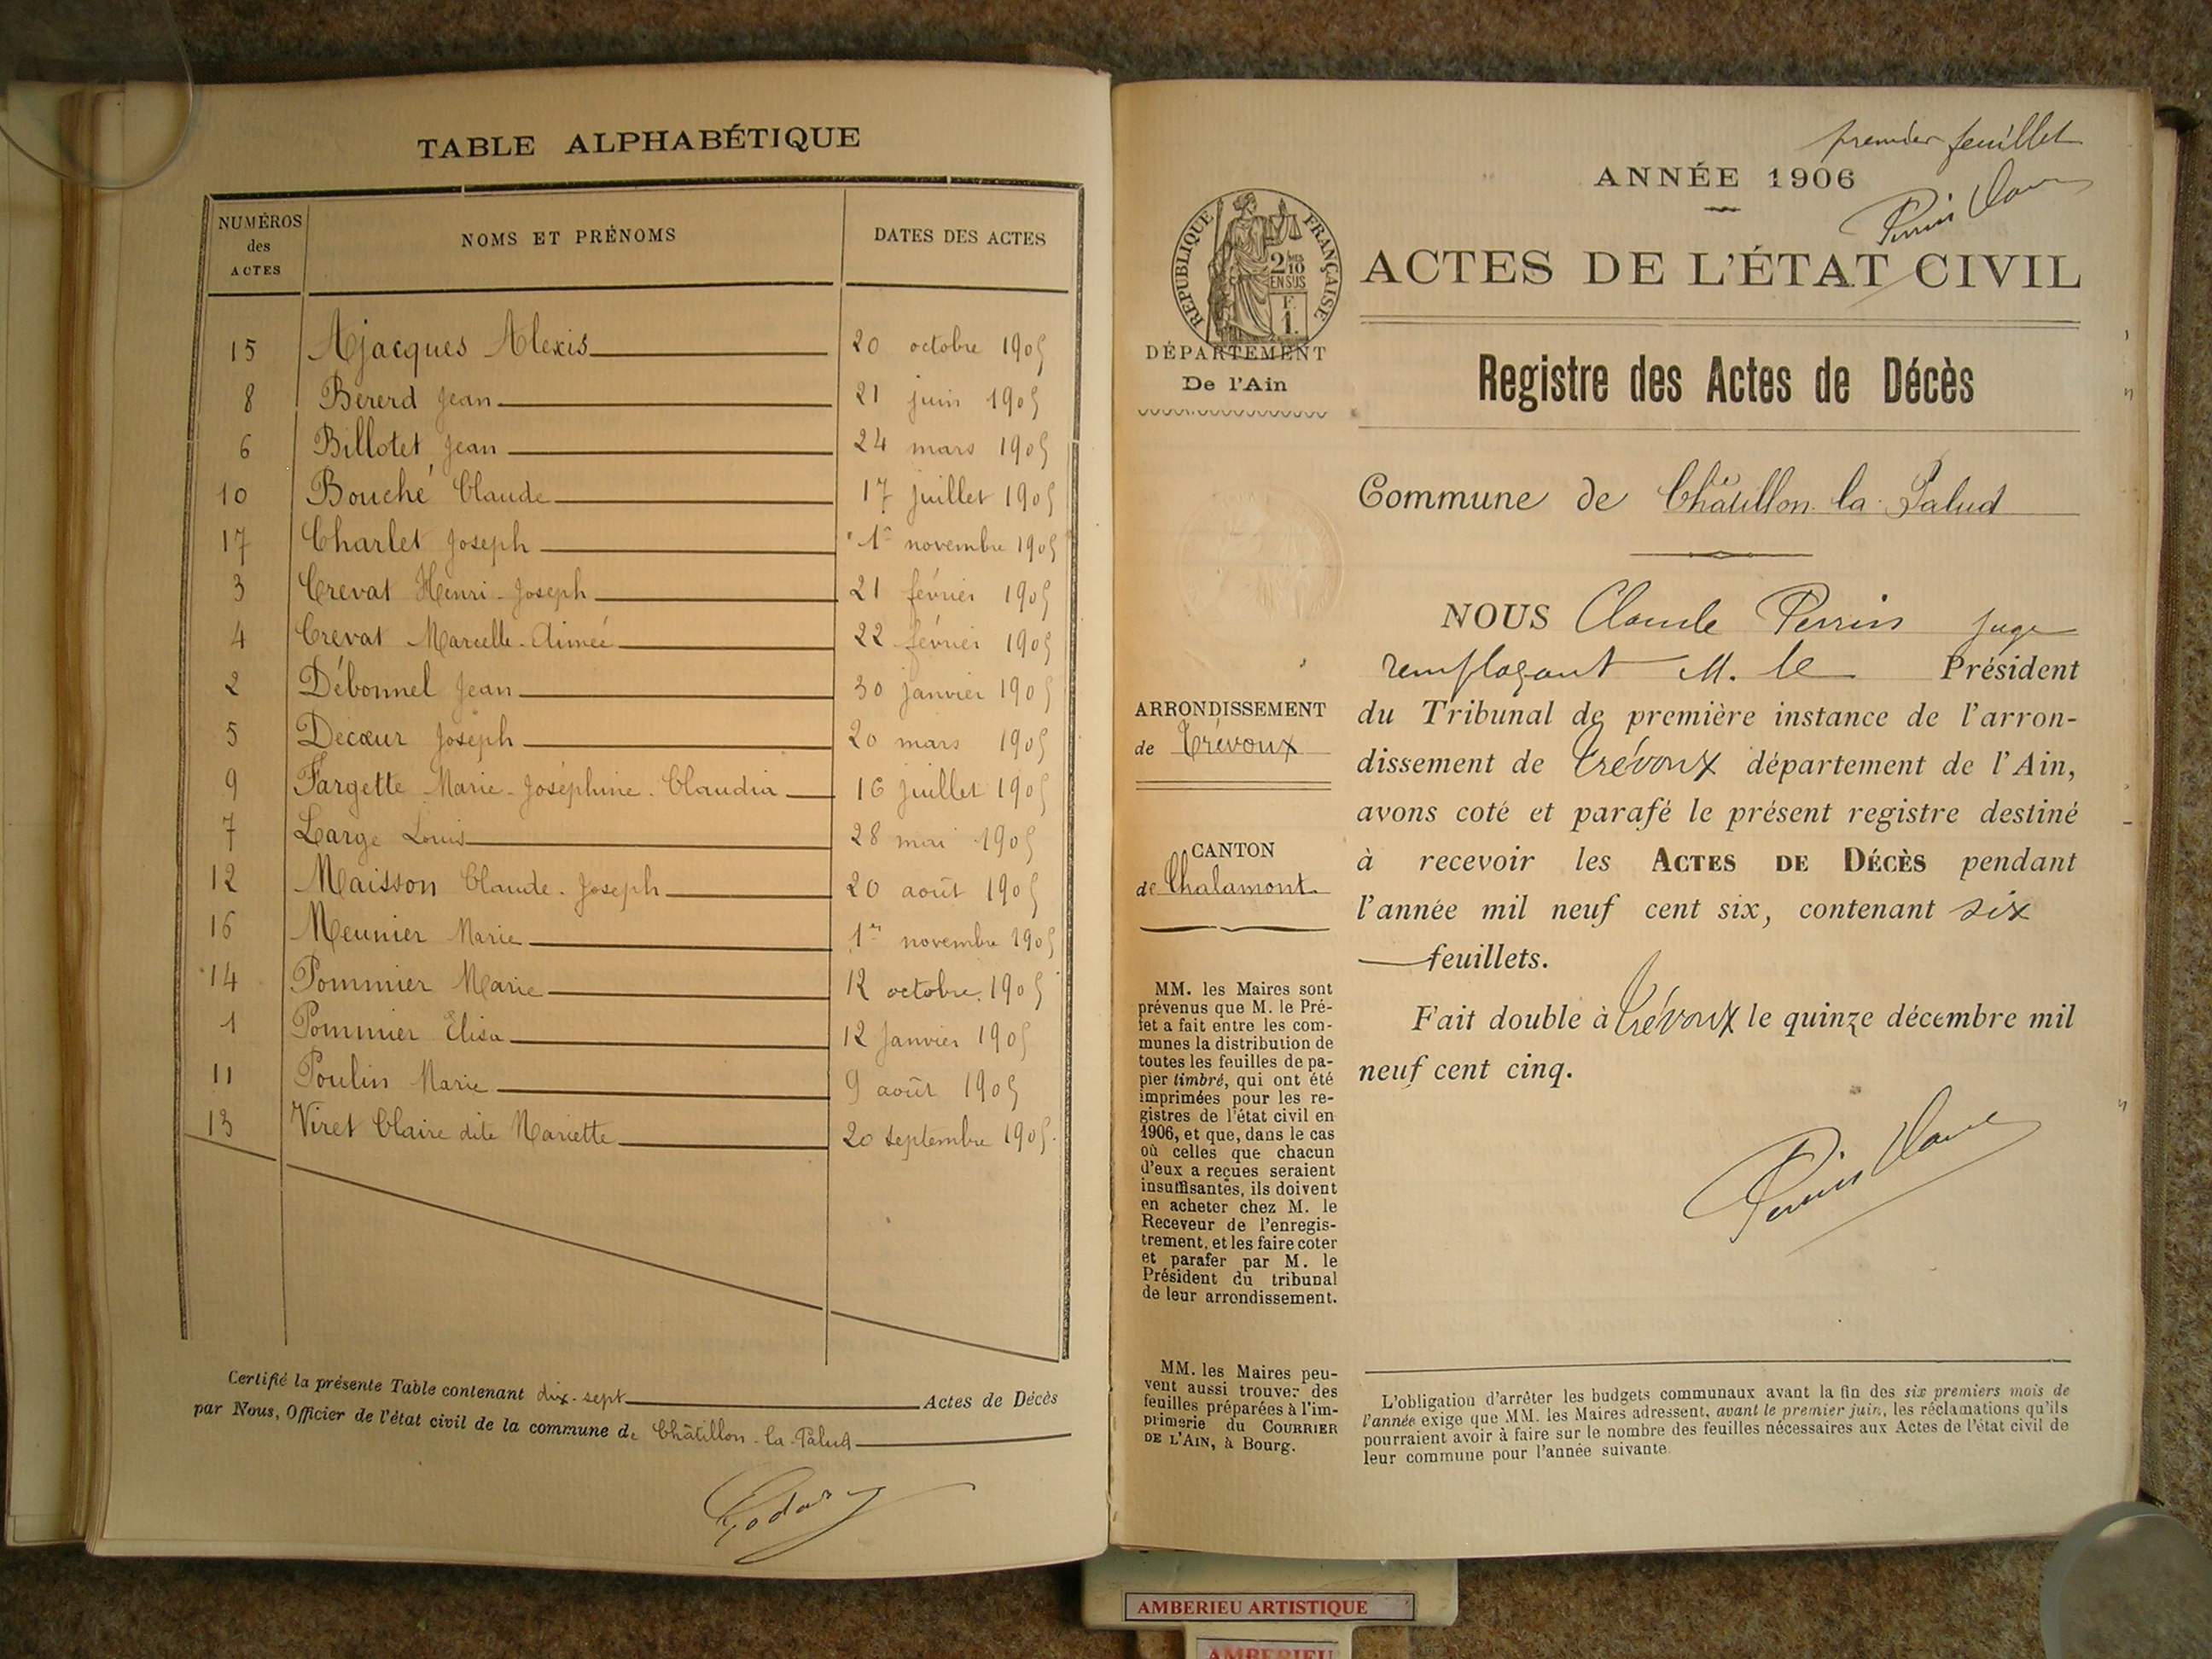 TABLE ALPHABÉTIQUE
NUMÉROS des ACTES NOMS ET PRÉNOMS DATES DES ACTES
15 Ajacques Alexis 20 octobre 1905
8 Bererd Jean 21 juin 1905
6 Billotet Jean 24 mars 1905
10 Bouché Claude 17 juillet 1905
17 Charlet Joseph 1er novembre 1905
3 Crevat Henri-Joseph 21 février 1905
4 Crevat Marcelle-Aimée 22 février 1905
2 Débonnel Jean 30 janvier 1905
5 Decœur Joseph 20 mars 1905
9 Fargette Marie-Joséphine-Claudia 16 juillet 1905
7 Large Louis 28 mai 1905
12 Maisson Claude-Joseph 20 août 1905
16 Meunier Marie 1er novembre 1905
14 Pommier Marie 12 octobre 1905
1 Pommier Elisa 12 Janvier 1905
11 Poulin Marie 9 août 1905
13 Viret Claire dite Mariette 20 septembre 1905
Certifié la présente Table contenant dix-sept Actes de Décès
par Nous, Officier de l'état civil de la commune de Châtillon-la-Palud
premier feuillet
ANNÉE 1906
Perrin Claude
RÉPUBLIQUE FRANÇAISE
2/10 EN SUS
F. 1.
ACTES DE L'ÉTAT CIVIL
DÉPARTEMENT
De l'Ain
Registre des Actes de Décès
Commune de Châtillon la Palud
NOUS Claude Perrin juge
remplaçant M. le Président
ARRONDISSEMENT
de Trévoux
du Tribunal de première instance de l'arron-
dissement de Trévoux département de l'Ain,
avons coté et parafé le présent registre destiné
CANTON
de Chalamont
à recevoir les ACTES DE DÉCÈS pendant
l'année mil neuf cent six, contenant six
feuillets.
Fait double à Trévoux le quinze décembre mil
neuf cent cinq.
Perrin Claude
MM. les Maires sont
prévenus que M. le Pré-
fet a fait entre les com-
munes la distribution de
toutes les feuilles de pa-
pier timbré, qui ont été
imprimées pour les re-
gistres de l'état civil en
1906, et que, dans le cas
où celles que chacun
d'eux a reçues seraient
insuffisantes, ils doivent
en acheter chez M. le
Receveur de l'enregis-
trement, et les faire coter
et parafer par M. le
Président du tribunal
de leur arrondissement.
MM. les Maires peu-
vent aussi trouver des
feuilles préparées à l'im-
primerie du COURRIER
DE L'AIN, à Bourg.
L'obligation d'arrêter les budgets communaux avant la fin des six premiers mois de
l'année exige que MM. les Maires adressent, avant le premier juin, les réclamations qu'ils
pourraient avoir à faire sur le nombre des feuilles nécessaires aux Actes de l'état civil de
leur commune pour l'année suivante.
AMBERIEU ARTISTIQUE
AMBERIEU